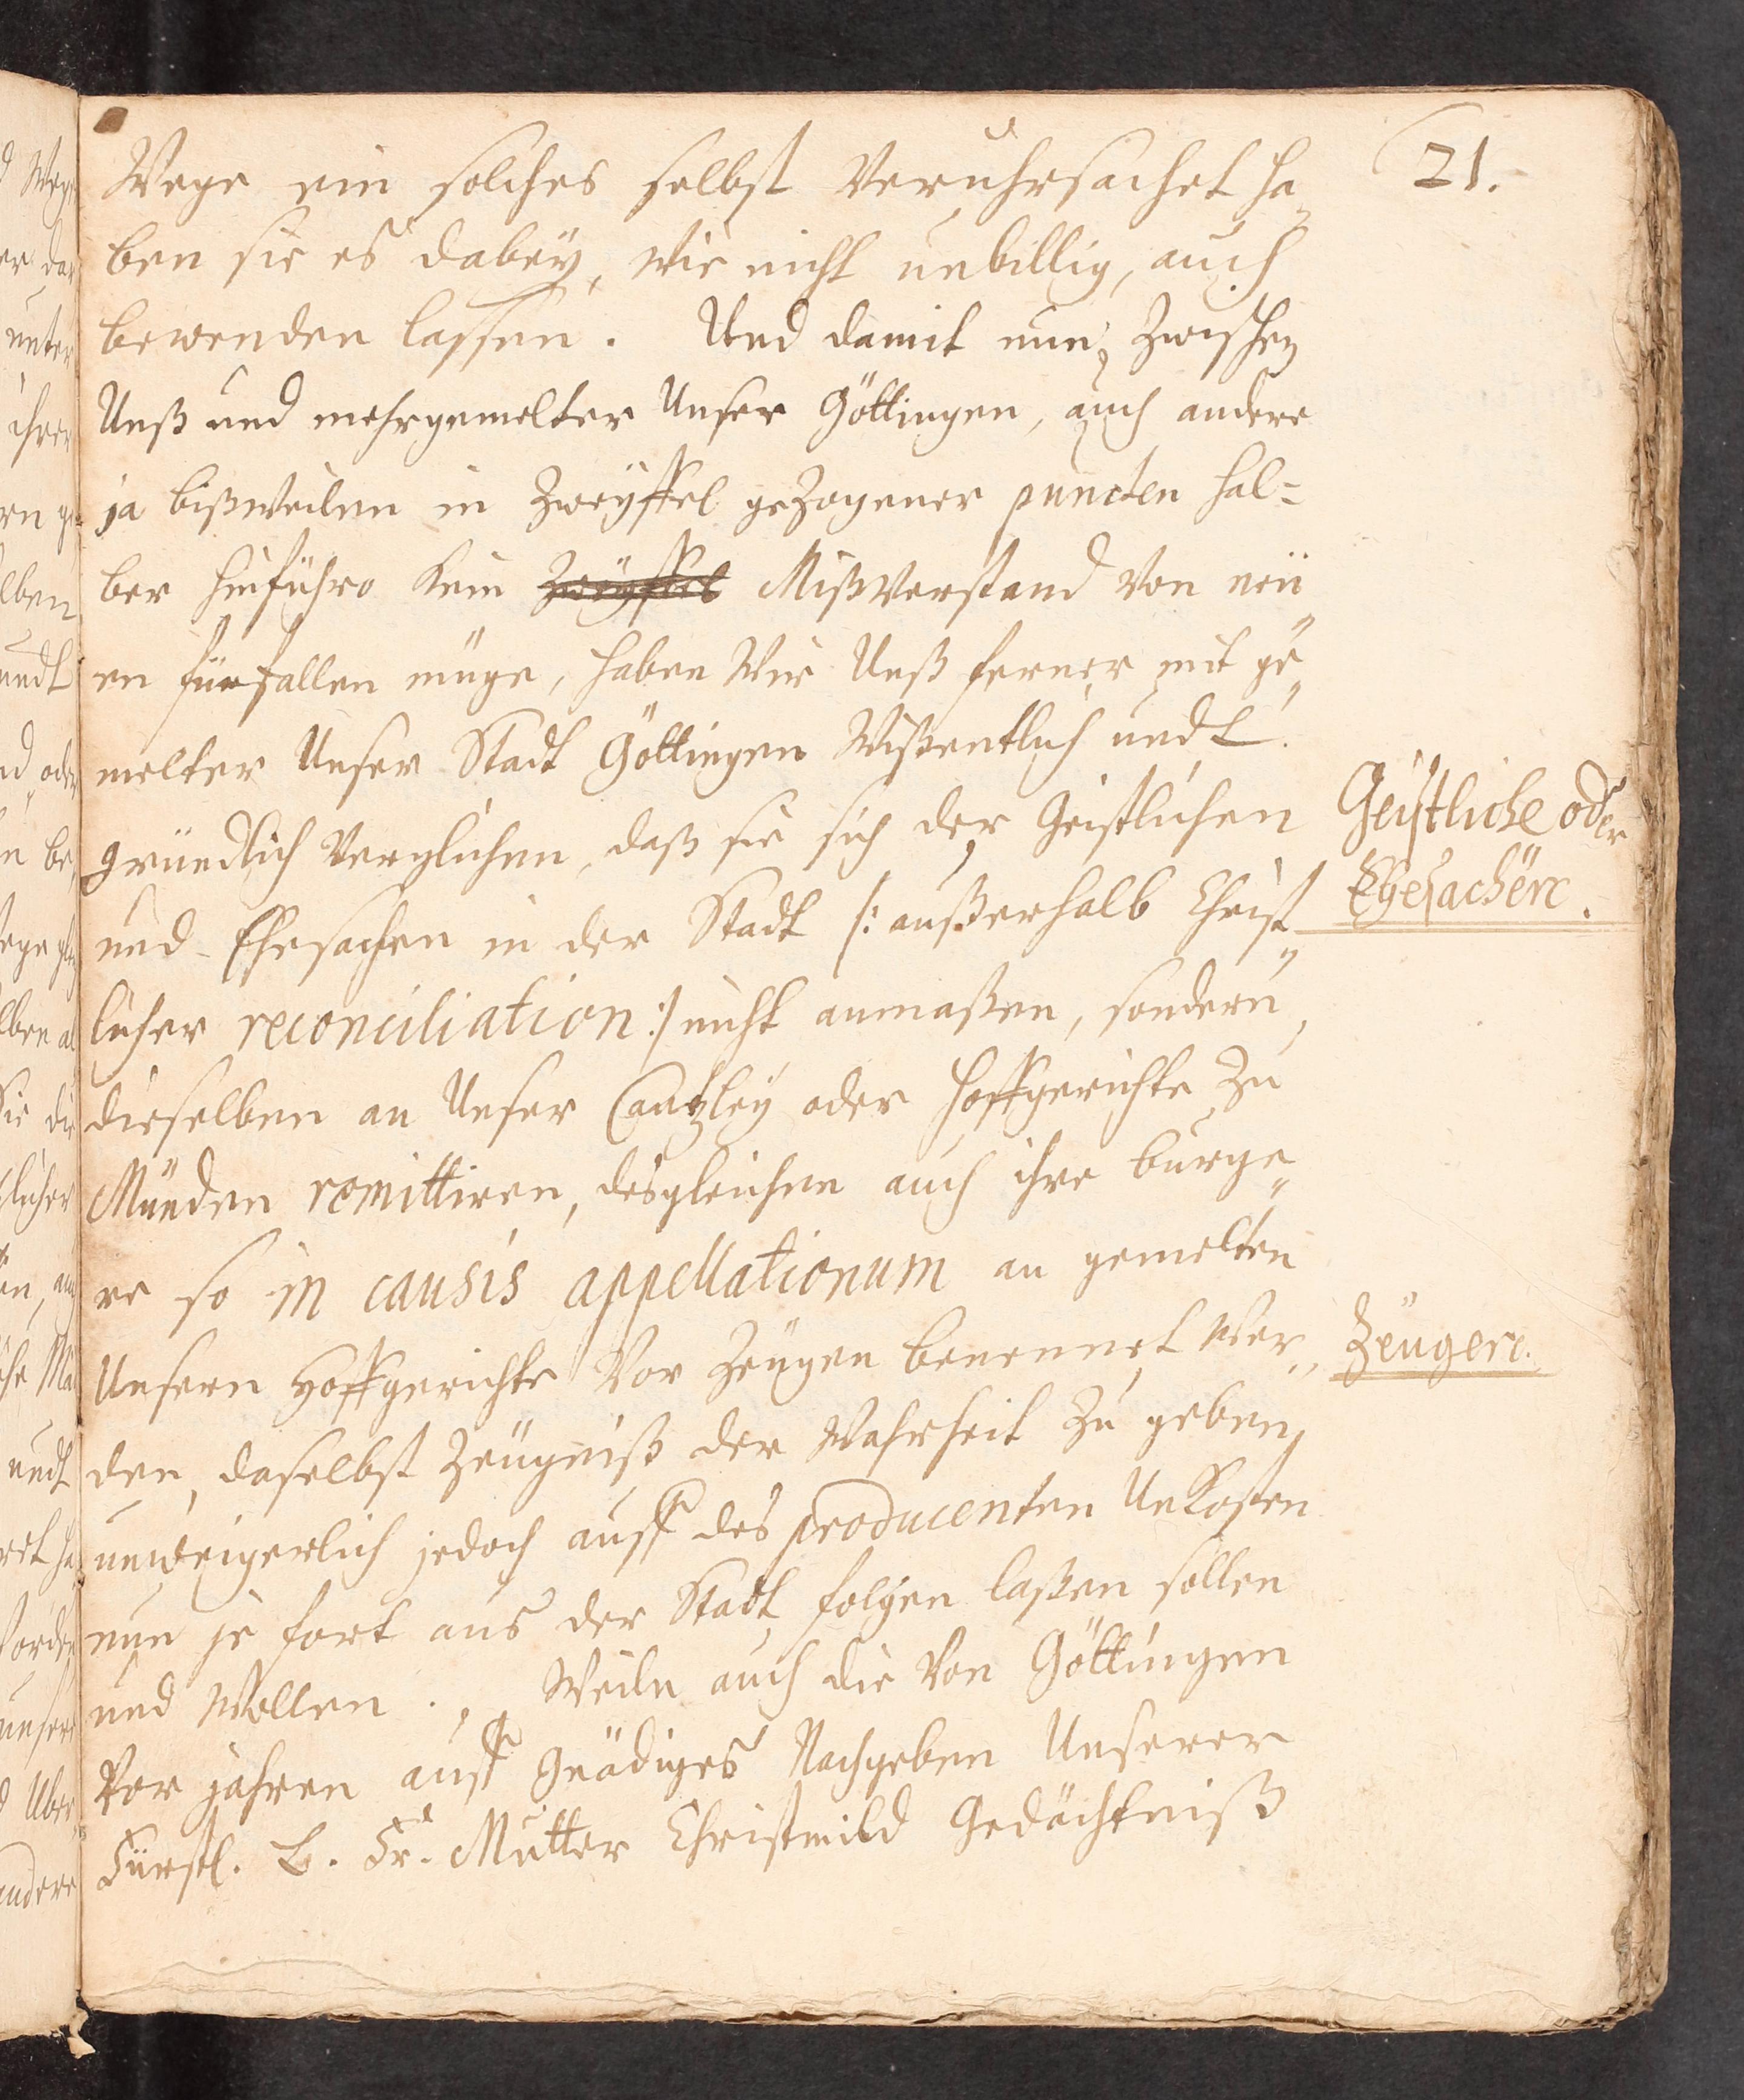 21.
Wege ein solches selbst Veruhrsachet ha„
ben sie es dabey, wie nicht unbillig, auch
bewenden lassen. Und damit nun, zwischen
Unß und mehrgemelter Unser Göttingen, auch andere
ja bißweilen in Zweyffel gezogener puncten hal=
ber hinführo kein Zweyffel Mißverstand von neü„
en fürfallen müge, haben Wir Unß ferner mit ge„
melter Unser Stadt Göttingen Wißentlich undt
gründlich Verglichen, daß sie sich der Geistlichen
Geistliche oder
Ehesachen.
und Ehesachen in der Stadt /: außerhalb Christ„
licher reconciliation :/ nicht anmaßen, sondern,
dieselben an Unser Cantzley oder Hoffgerichte Zu
Münden remittiren, desgleichen auch ihre bürge„
re so in causis appellationum an gemelten
Unsern Hoffgerichte Vor Zeugen benennet Wer„
Zeugen.
den, daselbst Zeugniß der Wahrheit Zu geben,
unweigerlich jedoch auff des producenten Unkosten
nun je fort aus der Stadt folgen laßen sollen
und Wollen. Weiln auch die von Göttingen
Vor jahren auff Gnädiges Nachgeben Unserer
Fürstl. L. Fr. Mutter Christmild Gedächtniß